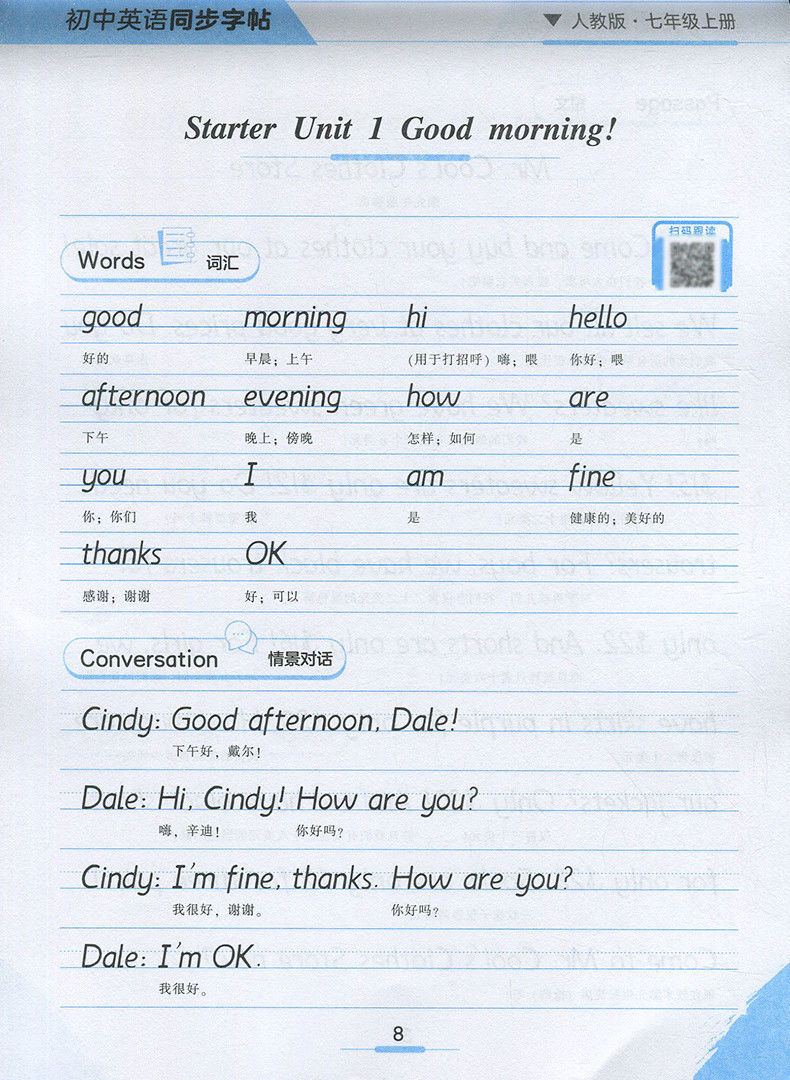 初中英语同步字帖
▼ 人教版·七年级上册
Starter Unit 1 Good morning!
扫码跟读
Words 词汇
good morning hi hello
好的 早晨；上午 (用于打招呼) 嗨；喂 你好；喂
afternoon evening how are
下午 晚上；傍晚 怎样；如何 是
you I am fine
你；你们 我 是 健康的；美好的
thanks OK
感谢；谢谢 好；可以
Conversation 情景对话
Cindy: Good afternoon, Dale!
下午好，戴尔！
Dale: Hi, Cindy! How are you?
嗨，辛迪！ 你好吗？
Cindy: I'm fine, thanks. How are you?
我很好，谢谢。 你好吗？
Dale: I'm OK.
我很好。
8